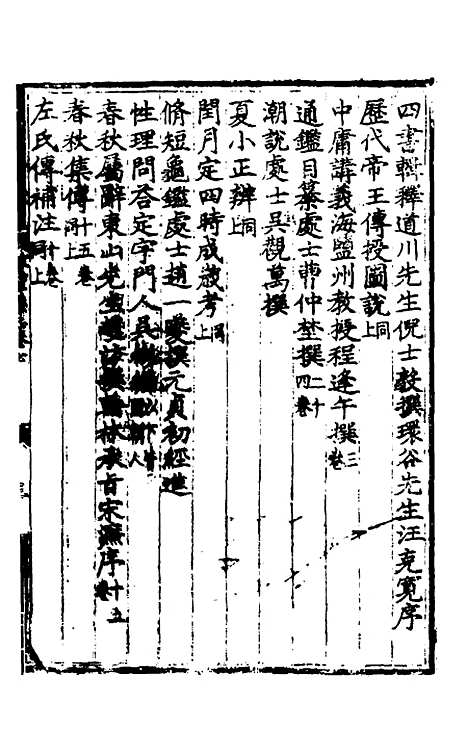 四書輯釋道川先生倪士毅撰環谷先生汪克寬序
歷代帝王傳授圖說同上
中庸講義海鹽州教授程逢午撰三卷
通鑑目纂處士曹仲埜撰二十四卷
潮說處士吳觀萬撰
夏小正辨同上
閏月定四時成歲考同上
脩短龜鑑處士趙一撰元貞初經進
性理問荅定宇門人吳人
春秋屬辭東山先生趙汸撰翰林承旨宋濂序十五卷
春秋集傳十五卷同上
左氏傳補注十卷同上